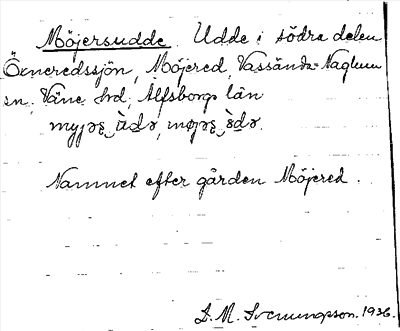 Möjersudde. Udde i södra delen
Öxneredssjön, Möjered, Vassända-Naglum
sn. Väne hd, Älfsborgs län
myjəʂ ùdə, møjəʂ
Namnet efter gården Möjered.
D. M. Svenungsson. 1936.